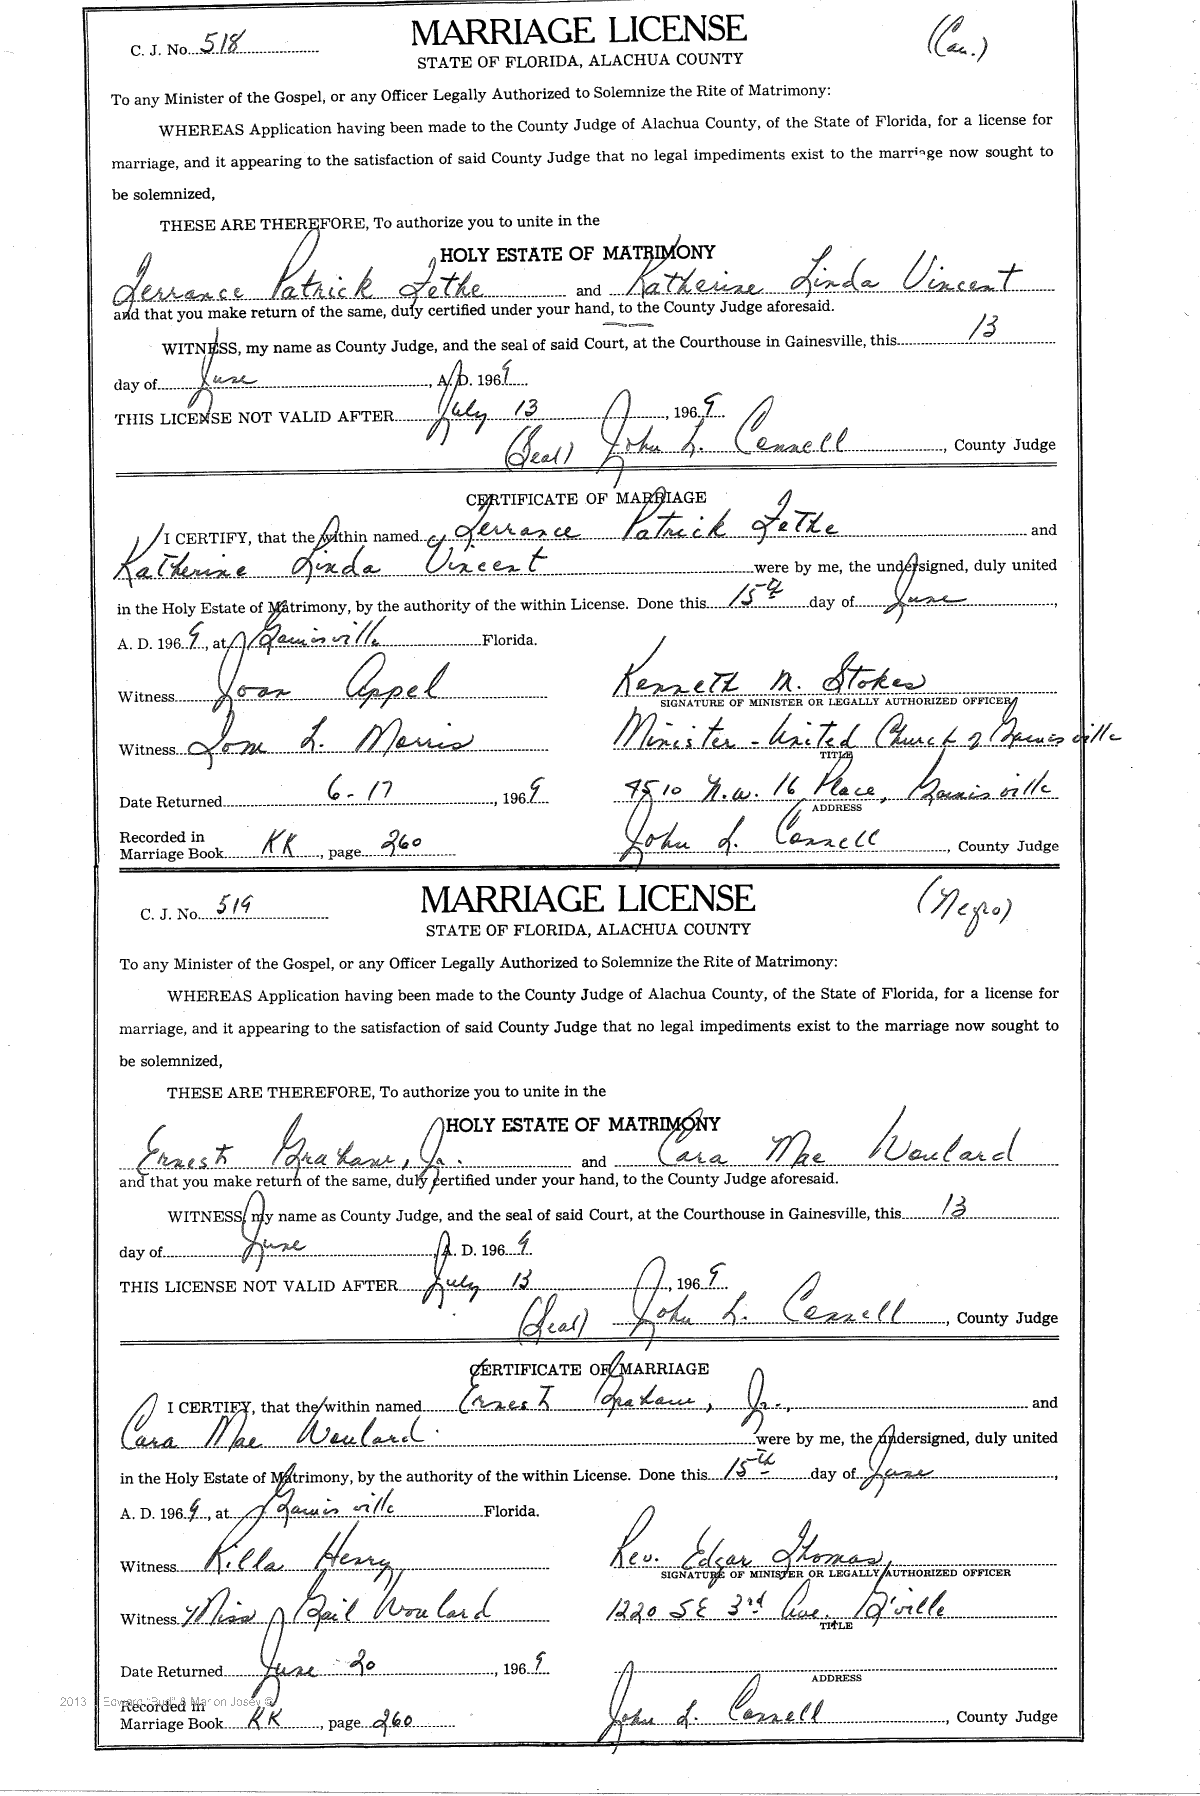 C. J. No. 518 MARRIAGE LICENSE (Cau.)
STATE OF FLORIDA, ALACHUA COUNTY
To any Minister of the Gospel, or any Officer Legally Authorized to Solemnize the Rite of Matrimony:
WHEREAS Application having been made to the County Judge of Alachua County, of the State of Florida, for a license for
marriage, and it appearing to the satisfaction of said County Judge that no legal impediments exist to the marriage now sought to
be solemnized,
THESE ARE THEREFORE, To authorize you to unite in the
HOLY ESTATE OF MATRIMONY
Terrance Patrick Fethe and Katherine Linda Vincent
and that you make return of the same, duly certified under your hand, to the County Judge aforesaid.
WITNESS, my name as County Judge, and the seal of said Court, at the Courthouse in Gainesville, this 13
day of June, A. D. 1969
THIS LICENSE NOT VALID AFTER July 13, 1969
(Seal) John L. Connell, County Judge
CERTIFICATE OF MARRIAGE
I CERTIFY, that the within named Terrance Patrick Fethe and
Katherine Linda Vincent were by me, the undersigned, duly united
in the Holy Estate of Matrimony, by the authority of the within License. Done this 15th day of June,
A. D. 1969, at Gainesville Florida.
Witness Joan Appel Kenneth M. Stokes
SIGNATURE OF MINISTER OR LEGALLY AUTHORIZED OFFICER
Witness Tom L. Morris Minister - United Church of Gainesville
TITLE
Date Returned 6-17, 1969 4510 N.W. 16 Place, Gainesville
ADDRESS
Recorded in
Marriage Book KK, page 260 John L. Connell, County Judge
C. J. No. 519 MARRIAGE LICENSE (Negro)
STATE OF FLORIDA, ALACHUA COUNTY
To any Minister of the Gospel, or any Officer Legally Authorized to Solemnize the Rite of Matrimony:
WHEREAS Application having been made to the County Judge of Alachua County, of the State of Florida, for a license for
marriage, and it appearing to the satisfaction of said County Judge that no legal impediments exist to the marriage now sought to
be solemnized,
THESE ARE THEREFORE, To authorize you to unite in the
HOLY ESTATE OF MATRIMONY
Ernest Graham, Jr. and Cara Mae Woulard
and that you make return of the same, duly certified under your hand, to the County Judge aforesaid.
WITNESS, my name as County Judge, and the seal of said Court, at the Courthouse in Gainesville, this 13
day of June A. D. 1969
THIS LICENSE NOT VALID AFTER July 13, 1969
(Seal) John L. Connell, County Judge
CERTIFICATE OF MARRIAGE
I CERTIFY, that the within named Ernest Graham, Jr., and
Cara Mae Woulard were by me, the undersigned, duly united
in the Holy Estate of Matrimony, by the authority of the within License. Done this 15th day of June,
A. D. 1969, at Gainesville Florida.
Witness Rilla Henry Rev. Edgar Thomas,
SIGNATURE OF MINISTER OR LEGALLY AUTHORIZED OFFICER
Witness Miss Gail Woulard 1220 SE 3rd Ave. G'ville
TITLE
Date Returned June 20, 1969
ADDRESS
2013 Edward "Bud" & Marion Josey ©
Recorded in
Marriage Book KK, page 260 John L. Connell, County Judge